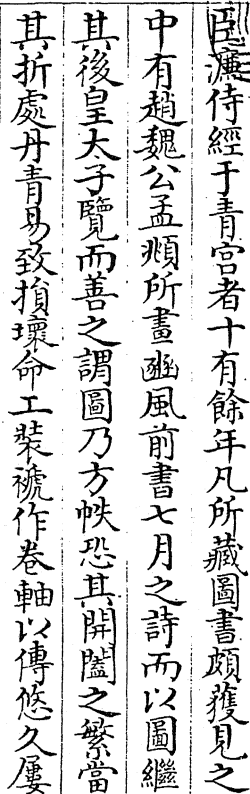 臣濂侍經于青宮者十有餘年凡所藏圖書頗獲見之
中有趙魏公孟頫所畫豳風前書七月之詩而以圖繼
其後皇太子覽而善之謂圖乃方帙恐其開闔之繁當
其折處丹青易致損壞命工裝褫作卷軸以傳悠久屢